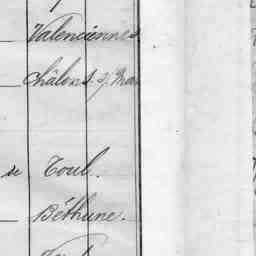 Valenciennes
Châlons s/ Mar
Toul.
Béthune.